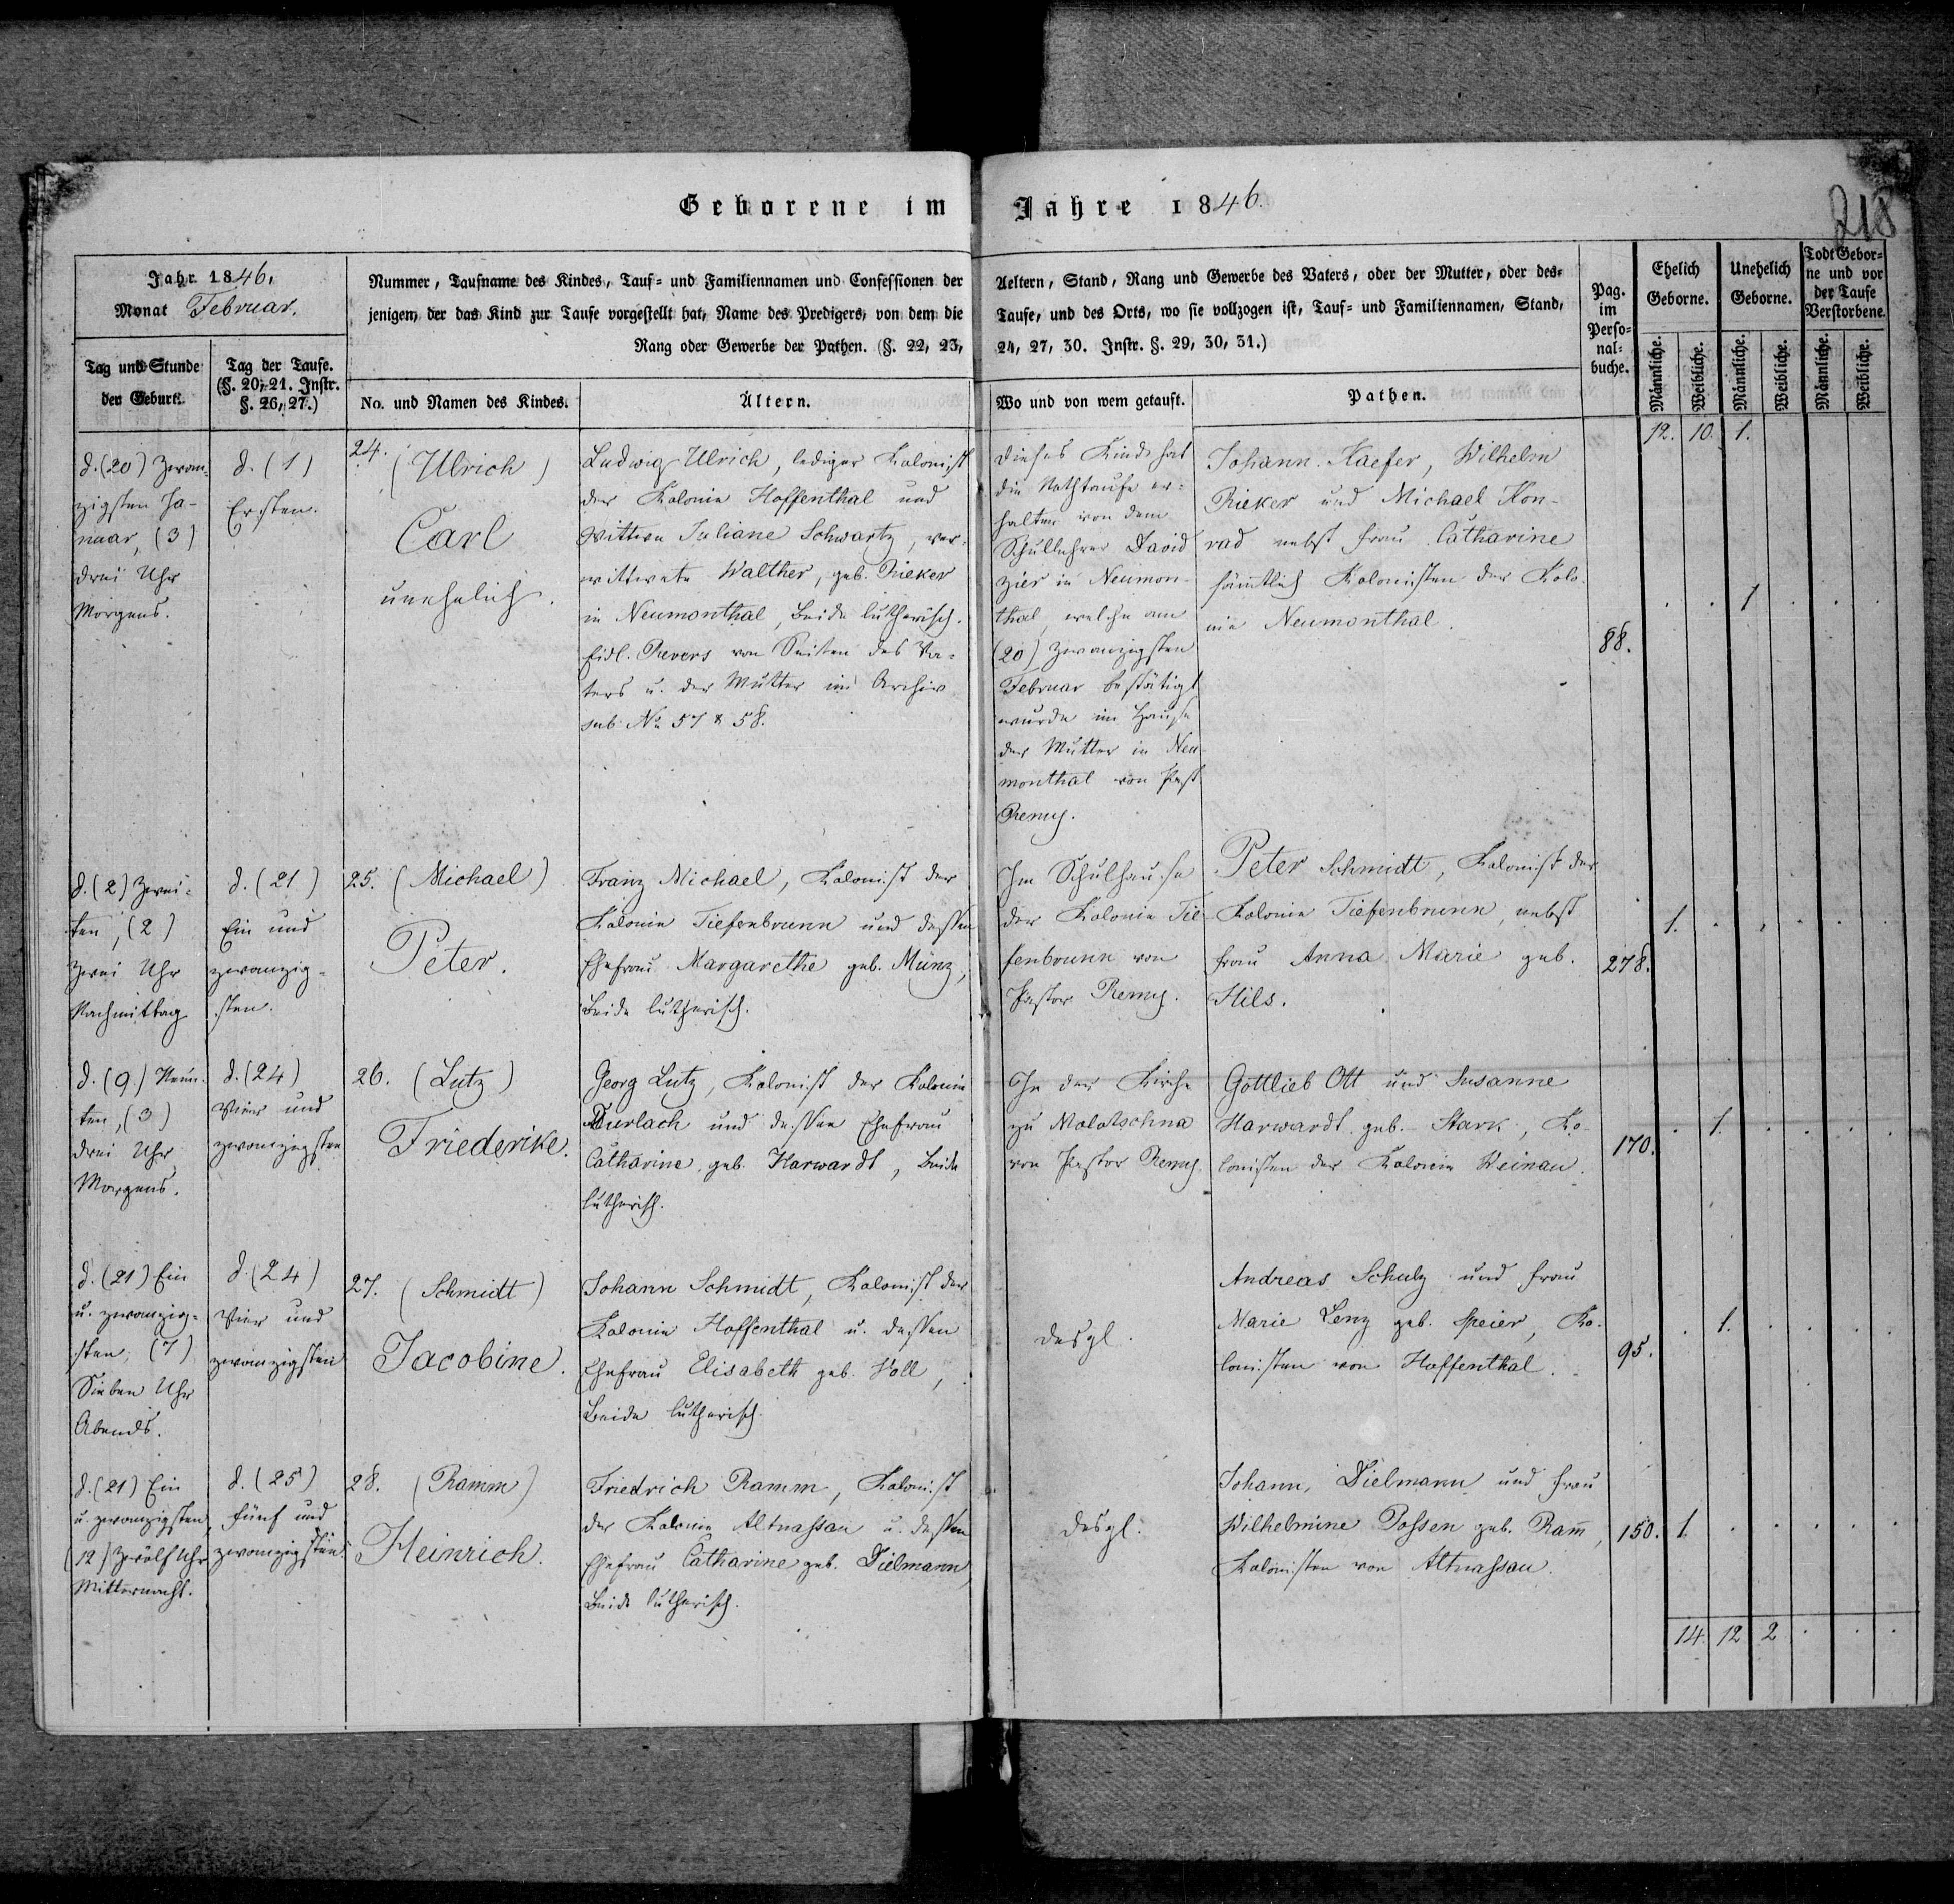 Geborene im Jahre 1846.
218
Jahr 1846.
Monat Februar.
Tag und Stunde
der Geburt.
Tag der Taufe.
(§. 20, 21. Instr.
§. 26, 27.)
Nummer, Taufname des Kindes, Tauf- und Familiennamen und Confessionen der
jenigen, der das Kind zur Taufe vorgestellt hat, Name des Predigers, von dem die
Rang oder Gewerbe der Pathen. (§. 22, 23,
No. und Namen des Kindes.
Ältern.
Aeltern, Stand, Rang und Gewerbe des Vaters, oder der Mutter, oder des-
Taufe, und des Orts, wo sie vollzogen ist, Tauf- und Familiennamen, Stand,
24, 27, 30. Instr. §. 29, 30, 31.)
Wo und von wem getauft.
Pathen.
Pag.
im
Perso-
nal-
buche.
Ehelich
Geborne.
Unehelich
Geborne.
Todt Gebor-
ne und vor
der Taufe
Verstorbene.
Männliche.
Weibliche.
Männliche.
Weibliche.
Männliche.
Weibliche.
12. 10. 1.
d. (20) Zwan-
zigsten Ja-
nuar, (3)
drei Uhr
Morgens.
d. (1)
Ersten.
24.
(Ulrich)
Carl
unehelich.
Ludwig Ulrich, lediger Kolonist
der Kolonie Hoffenthal und
Wittwe Juliane Schwartz, ver-
wittwete Walther, geb. Rieker
in Neumonthal, Beide lutherisch.
Eidl. Revers von Seiten des Va-
ters u. der Mutter im Archiv
sub. No 57 & 58.
Dieses Kind hat
die Nothtaufe er-
halten von dem
Schullehrer David
Zier in Neumon-
thal, welche am
(20) Zwanzigsten
Februar bestätigt
wurde im Hause
der Mutter in Neu-
monthal von Past
Remy.
Johann Kaefer, Wilhelm
Rieker und Michael Kon-
rad nebst Frau Catharine
sämtlich Kolonisten der Kolo-
nie Neumonthal.
88.
. . 1 . . .
d. (2) Zwei-
ten, (2)
Zwei Uhr
Nachmittag
d. (21)
Ein und
zwanzig-
sten.
25. (Michael)
Peter.
Franz Michael, Kolonist der
Kolonie Tiefenbrunn und dessen
Ehefrau Margarethe geb. Münz,
Beide lutherisch.
Im Schulhause
der Kolonie Tie-
fenbrunn von
Pastor Remy.
Peter Schmidt, Kolonist der
Kolonie Tiefenbrunn, nebst
Frau Anna Marie geb.
Hils.
278.
1. . . . . .
d. (9.) Neun-
ten, (3)
drei Uhr
Morgens.
d. (24)
Vier und
zwanzigsten
26. (Lutz)
Friederike.
Georg Lutz, Kolonist der Kolonie
Durlach und dessen Ehefrau
Catharine, geb. Harwardt, Beide
lutherisch.
In der Kirche
zu Molotschna
von Pastor Remy.
Gottlieb Ott und Susanne
Harwardt geb. Stark, Ko-
lonisten der Kolonie Weinau.
170.
. 1. . . . .
d. (21) Ein
u. zwanzig-
sten, (7)
Sieben Uhr
Abends.
d. (24)
Vier und
zwanzigsten
27. (Schmidt)
Jacobine.
Johann Schmidt, Kolonist der
Kolonie Hoffenthal u. dessen
Ehefrau Elisabeth geb. Voll,
Beide lutherisch.
desgl.
Andreas Schulz und Frau
Marie Lenz geb. Meier, Ko-
lonisten von Hoffenthal.
95.
. 1. . . . .
d. (21) Ein
u. zwanzigsten,
(12) Zwölf Uhr
Mitternacht.
d. (25)
fünf und
zwanzigsten.
28. (Ramm)
Heinrich.
Friedrich Ramm, Kolonist
der Kolonie Altnassau u. dessen
Ehefrau Catharine geb. Dielmann,
Beide lutherisch.
desgl.
Johann Dielmann und Frau
Wilhelmine Possen geb. Ram̄,
Kolonisten von Altnassau.
150.
1. . . . . .
14. 12 2 . . .